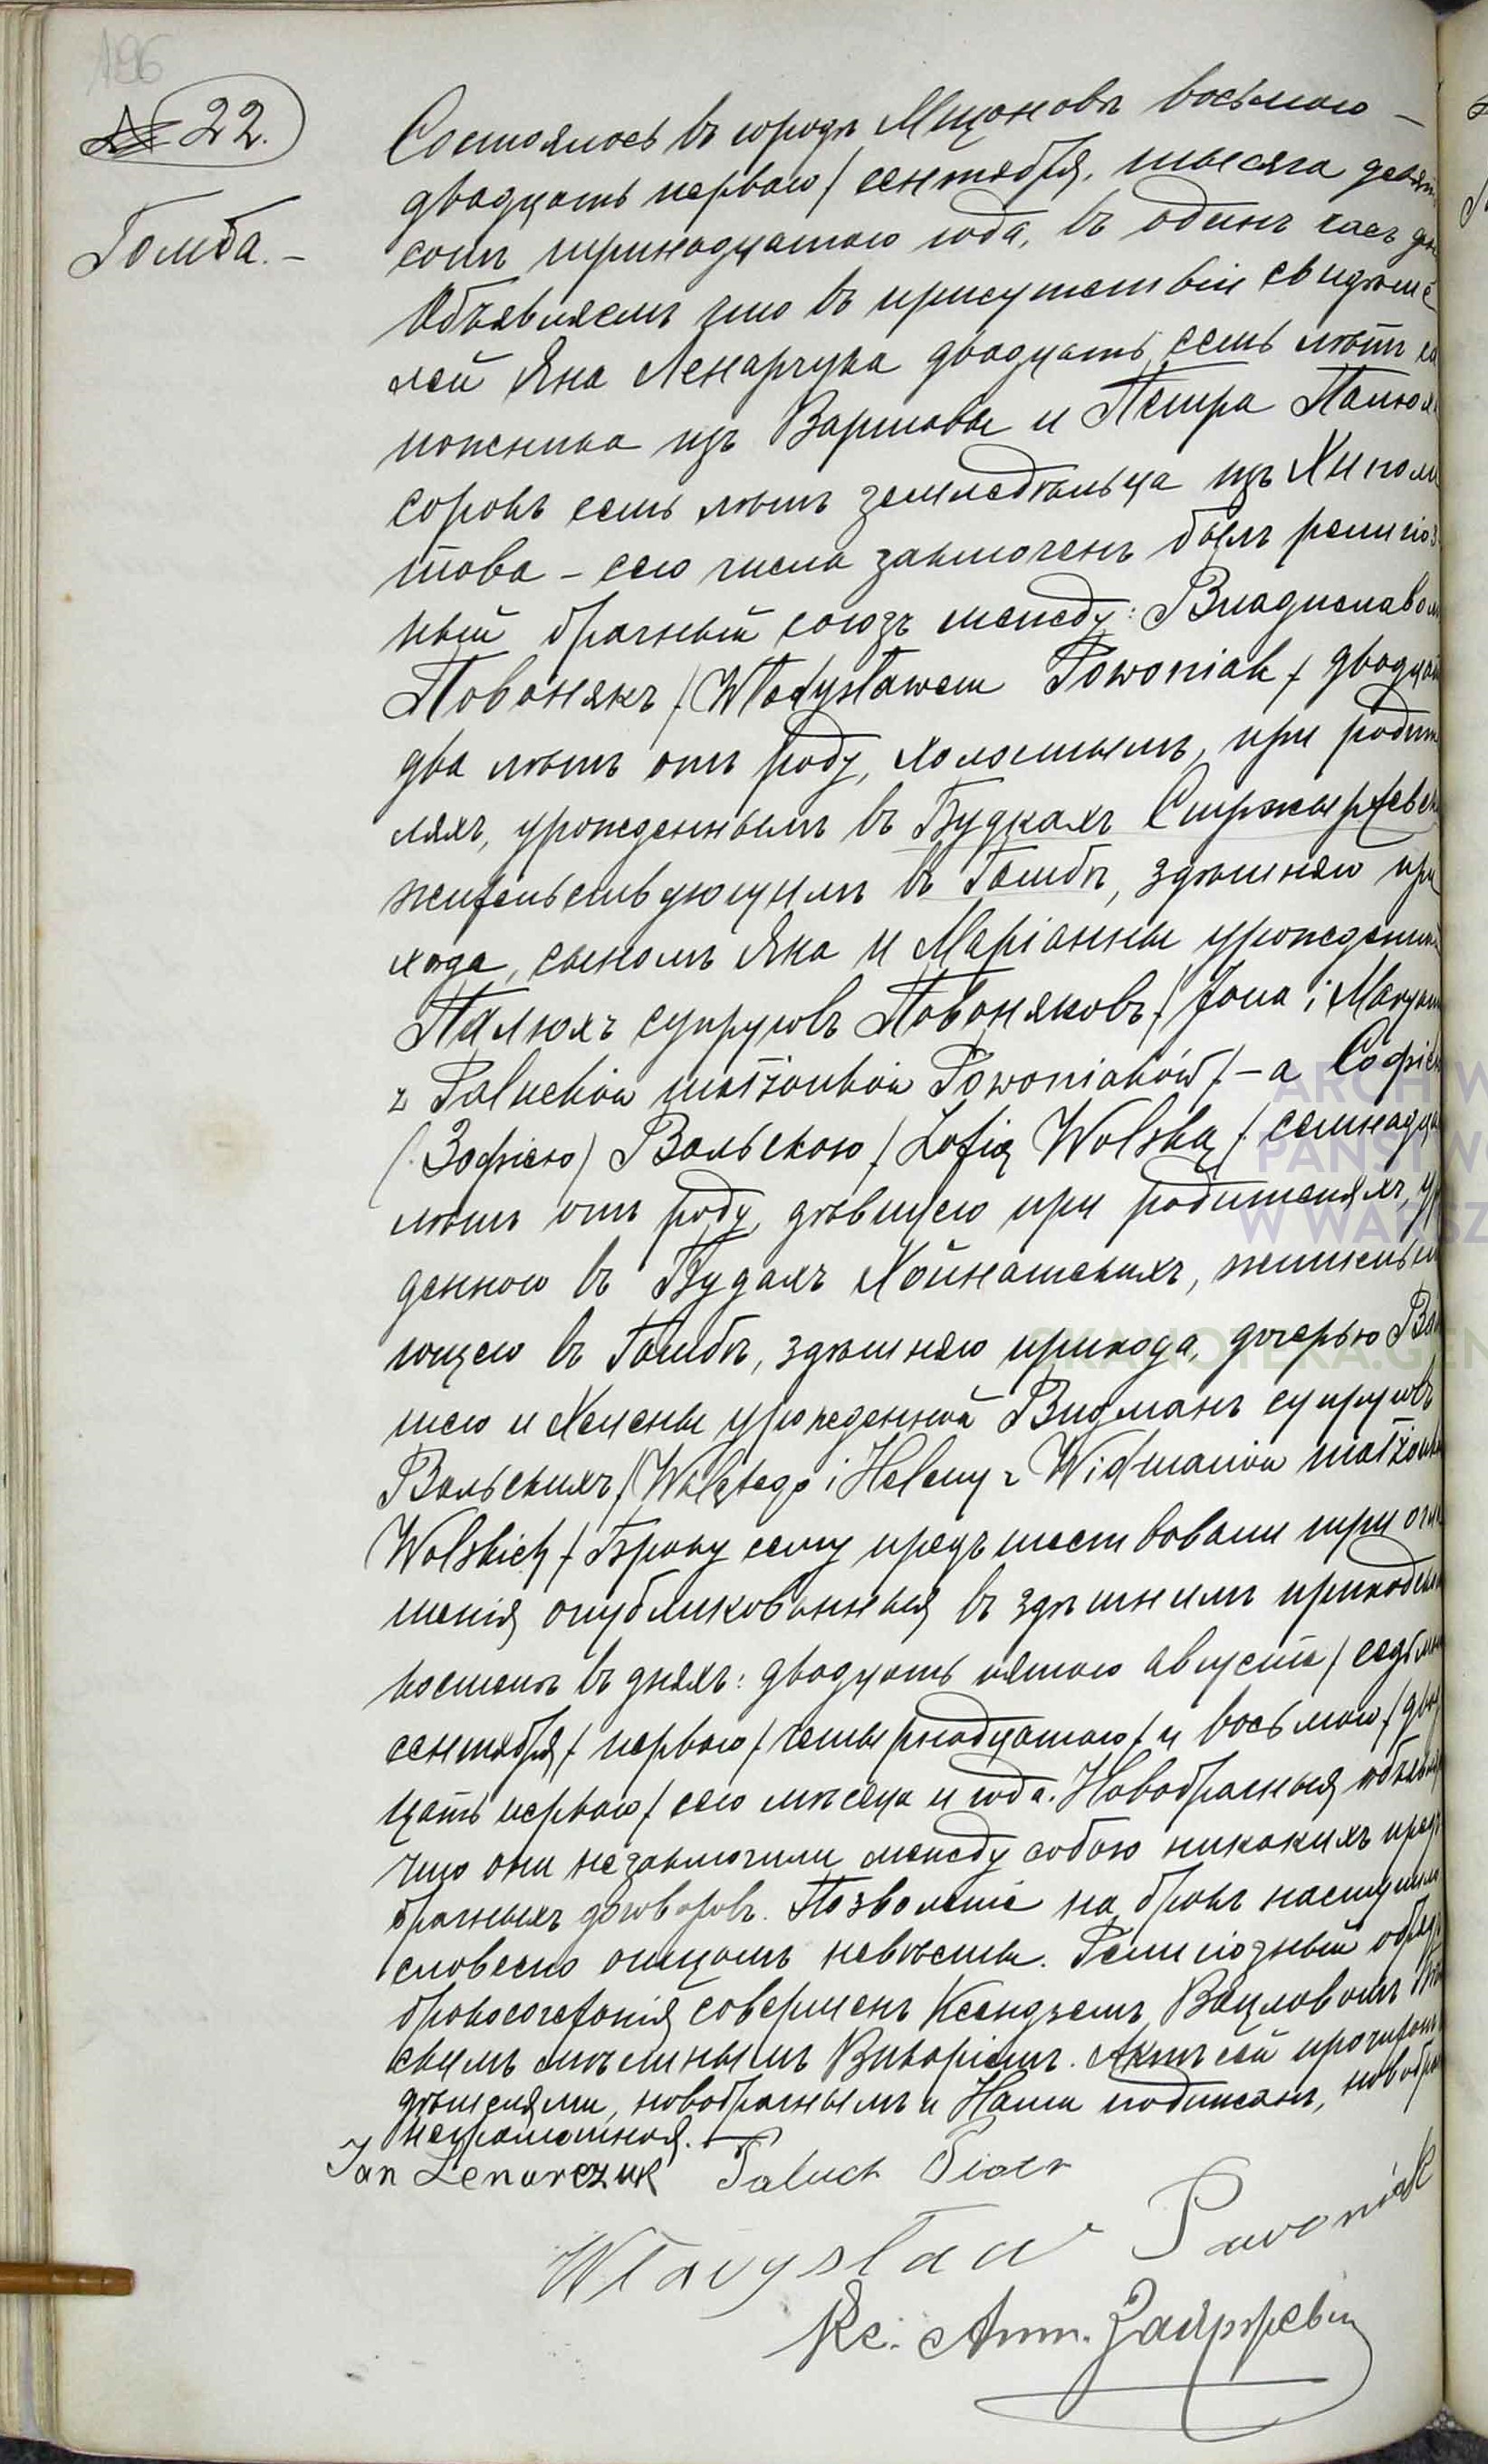 196
№ 22.
Гомба. –
Состоялось въ городѣ Мщоновѣ восьмого –
двадцать перваго / сентября, тысяча девят
сотъ тринадцатаго года, въ одинъ часъ дня
Объявляемъ что въ присутствіи свидѣте
лей Яна Ленарчука двадцать семь лѣтъ са
пожника изъ Варшавы и Петра Палюха
сорокъ семь лѣтъ земледѣльца изъ
това – сего числа заключенъ былъ религіоз
ный брачный союзъ между: Владиславом
Повонякъ / Władysławem Powoniak / двадцать
два лѣтъ отъ роду, холостымъ, при родите
ляхъ, урожденнымъ въ Будкахъ
жительствующимъ въ Гомбѣ, здѣшняго при
хода, сыномъ Яна и Маріанны урожденной
Палюхъ супруговъ Повоняковъ / Jana i Maryanny
z Paluchów małżonków Powoniaków / – а Софіею
(Зофіею) Вольскою / Zofią Wolską / семнадца
лѣтъ отъ роду, дѣвицею при родителяхъ, у
денною въ Будахъ Хойнатскихъ, жительст
ющею въ Гомбѣ, здѣшняго прихода, дочерью Ва
таго и Хелены урожденной Видманъ супруговъ
Вольскихъ / Walętego i Heleny z Widmanów małżonków
Wolskich / Браку сему предшествовали три огла
шенія опубликованныя въ здѣшнемъ приходском
костелѣ въ дняхъ: двадцать пятаго августа / седьмого
сентября / перваго / четырнадцатаго / и восьмого / двад
цать перваго / сего мѣсяца и года. Новобрачныя объявили
что они незаключили между собою никакихъ пред
брачныхъ договоровъ. Позволеніе на бракъ наступило
словесно отцомъ невѣсты. Религіозный обрядъ
бракосочетанія совершенъ Ксендзомъ Вацлавомъ
скимъ мѣстнымъ Викаріемъ. Актъ сей прочитанъ
дѣтелями, новобрачнымъ и Нами подписанъ, новобра
неграмотная.
Jan Lenarczuk Paluch Piotr
Władysław Pawoniak
Кс. Ант.
ARCHIW
PAŃSTWO
W WARSZ
SKANOTEKA.GEN